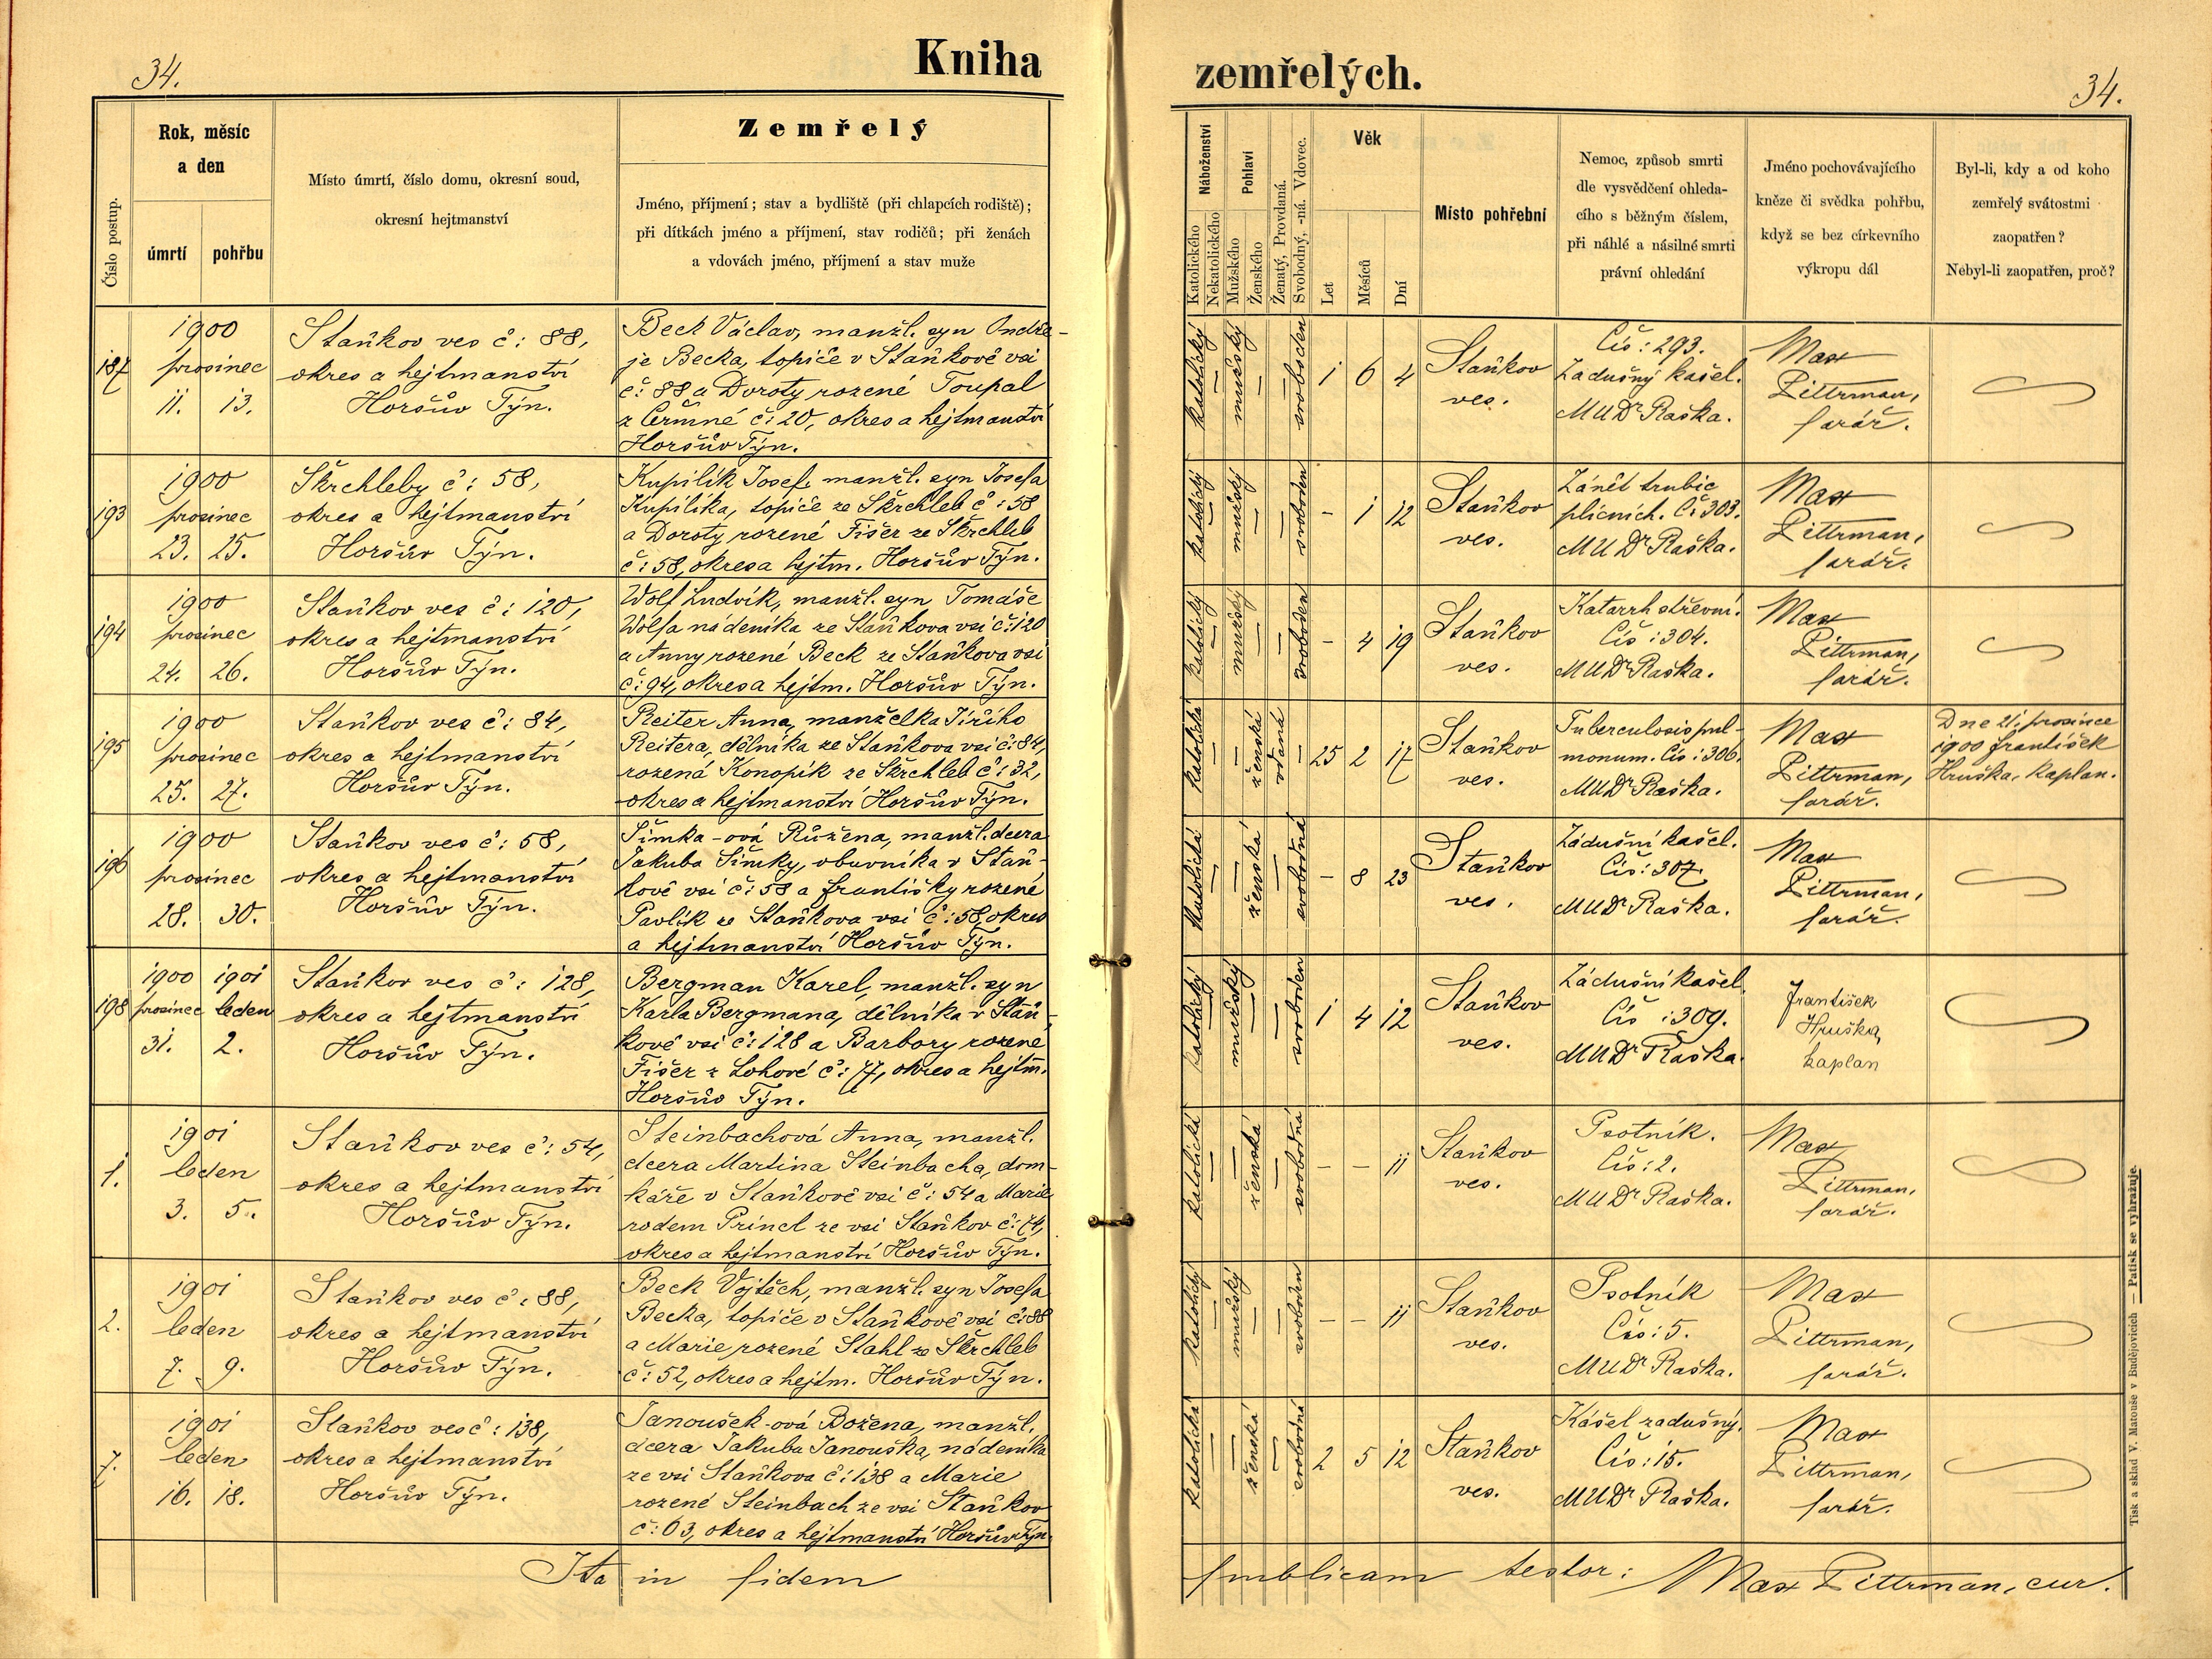 34.
Kniha
zemřelých.
34.
Číslo postup.
Rok, měsíc
a den
úmrtí
pohřbu
Místo úmrtí, číslo domu, okresní soud,
okresní hejtmanství
Zemřelý
Jméno, příjmení; stav a bydliště (při chlapcích rodiště);
při dítkách jméno a příjmení, stav rodičů; při ženách
a vdovách jméno, příjmení a stav muže
Náboženství
Katolického
Nekatolického
Pohlaví
Mužského
Ženského
Ženatý, Provdaná.
Svobodný, -ná. Vdovec.
Věk
Let
Měsíců
Dní
Místo pohřební
Nemoc, způsob smrti
dle vysvědčení ohleda-
cího s běžným číslem,
při náhlé a násilné smrti
právní ohledání
Jméno pochovávajícího
kněze či svědka pohřbu,
když se bez církevního
výkropu dál
Byl-li, kdy a od koho
zemřelý svátostmi
zaopatřen?
Nebyl-li zaopatřen, proč?
187
1900
prosinec
11. 13.
Staňkov ves č: 88,
okres a hejtmanství
Horšův Týn.
Beck Václav, manžl. syn Ondře-
je Becka, topiče v Staňkově vsi
č: 88 a Doroty rozené Toupal
z Čermné č: 20, okres a hejtmanství
Horšův Týn.
katolický
—
mužský
—
—
svoboden
1 6 4
Staňkov
ves.
Čís: 293.
Zadušný kašel.
MUDr Raška.
Max
Pittrman,
farář.
193
1900
prosinec
23. 25.
Škrchleby č: 58,
okres a hejtmanství
Horšův Týn.
Kupilík Josef, manžl. syn Josefa
Kupilíka, topiče ze Škrchleb č: 58
a Doroty rozené Fišer ze Škrchleb
č: 58, okres a hejtm. Horšův Týn.
katolický
—
mužský
—
—
svoboden
- 1 12
Staňkov
ves.
Zánět trubic
plicních. Č: 303.
MUDr Raška.
Max
Pittrman,
farář.
194
1900
prosinec
24. 26.
Staňkov ves č: 120,
okres a hejtmanství
Horšův Týn.
Wolf Ludvík, manžl. syn Tomáše
Wolfa nádeníka ze Staňkova vsi č: 120
a Anny rozené Beck ze Staňkova vsi
č: 94, okres a hejtm. Horšův Týn.
katolický
—
mužský
—
—
svoboden
- 4 19
Staňkov
ves.
Katarrh střevní.
Čís: 304.
MUDr Raška.
Max
Pittrman,
farář.
195
1900
prosinec
25. 27.
Staňkov ves č: 84,
okres a hejtmanství
Horšův Týn.
Reiter Anna, manželka Jiřího
Reitera, dělníka ze Staňkova vsi č: 84,
rozená Konopík ze Škrchleb č: 32,
okres a hejtmanství Horšův Týn.
katolická
—
—
ženská
vdaná
—
25 2 17
Staňkov
ves.
Tuberculosis pul-
monum. Čís: 306.
MUDr Raška.
Max
Pittrman,
farář.
Dne 21. prosince
1900 František
Hruška, kaplan.
196
1900
prosinec
28. 30.
Staňkov ves č: 58,
okres a hejtmanství
Horšův Týn.
Šimka-ová Růžena, manžl. dcera
Jakuba Šimky, obuvníka v Staň-
kově vsi č: 58 a Františky rozené
Pavlík ze Staňkova vsi č: 58, okres
a hejtmanství Horšův Týn.
katolická
—
—
ženská
—
svobodná
- 8 23
Staňkov
ves.
Zádušní kašel.
Čís: 307.
MUDr Raška.
Max
Pittrman,
farář.
198
1900 1901
prosinec leden
31. 2.
Staňkov ves č: 128,
okres a hejtmanství
Horšův Týn.
Bergman Karel, manžl. syn
Karla Bergmana, dělníka v Staň-
kově vsi č: 128 a Barbory rozené
Fišer z Lohové č: 77, okres a hejtm.
Horšův Týn.
katolický
—
mužský
—
—
svoboden
1 4 12
Staňkov
ves.
Zádušní kašel
Čís: 309.
MUDr Raška.
František
Hruška,
kaplan
1.
1901
leden
3. 5.
Staňkov ves č: 54,
okres a hejtmanství
Horšův Týn.
Steinbachová Anna, manžl.
dcera Martina Steinbacha, dom-
káře v Staňkově vsi č: 54 a Marie
rodem Princl ze vsi Staňkov č: 74,
okres a hejtmanství Horšův Týn.
katolická
—
—
ženská
—
svobodná
- - 11
Staňkov
ves.
Psotník.
Čís: 2.
MUDr Raška.
Max
Pittrman,
farář.
2.
1901
leden
7. 9.
Staňkov ves č: 88,
okres a hejtmanství
Horšův Týn.
Beck Vojtěch, manžl. syn Josefa
Becka, topiče v Staňkově vsi č: 88
a Marie rozené Stahl ze Škrchleb
č: 52, okres a hejtm. Horšův Týn.
katolický
—
mužský
—
—
svoboden
- - 11
Staňkov
ves.
Psotník
Čís: 5.
MUDr Raška.
Max
Pittrman,
farář.
7.
1901
leden
16. 18.
Staňkov ves č: 138,
okres a hejtmanství
Horšův Týn.
Janoušek-ová Božena, manžl.
dcera Jakuba Janouška, nádeníka
ze vsi Staňkova č: 138 a Marie
rozené Steinbach ze vsi Staňkov
č: 63, okres a hejtmanství Horšův Týn.
katolická
—
—
ženská
—
svobodná
2 5 12
Staňkov
ves.
Kašel zadušný.
Čís: 15.
MUDr Raška.
Max
Pittrman,
farář.
Ita in fidem publicam testor: Max Pittrman, cur.
Tisk a sklad V. Matouše v Budějovicích — Patisk se vyhražuje.